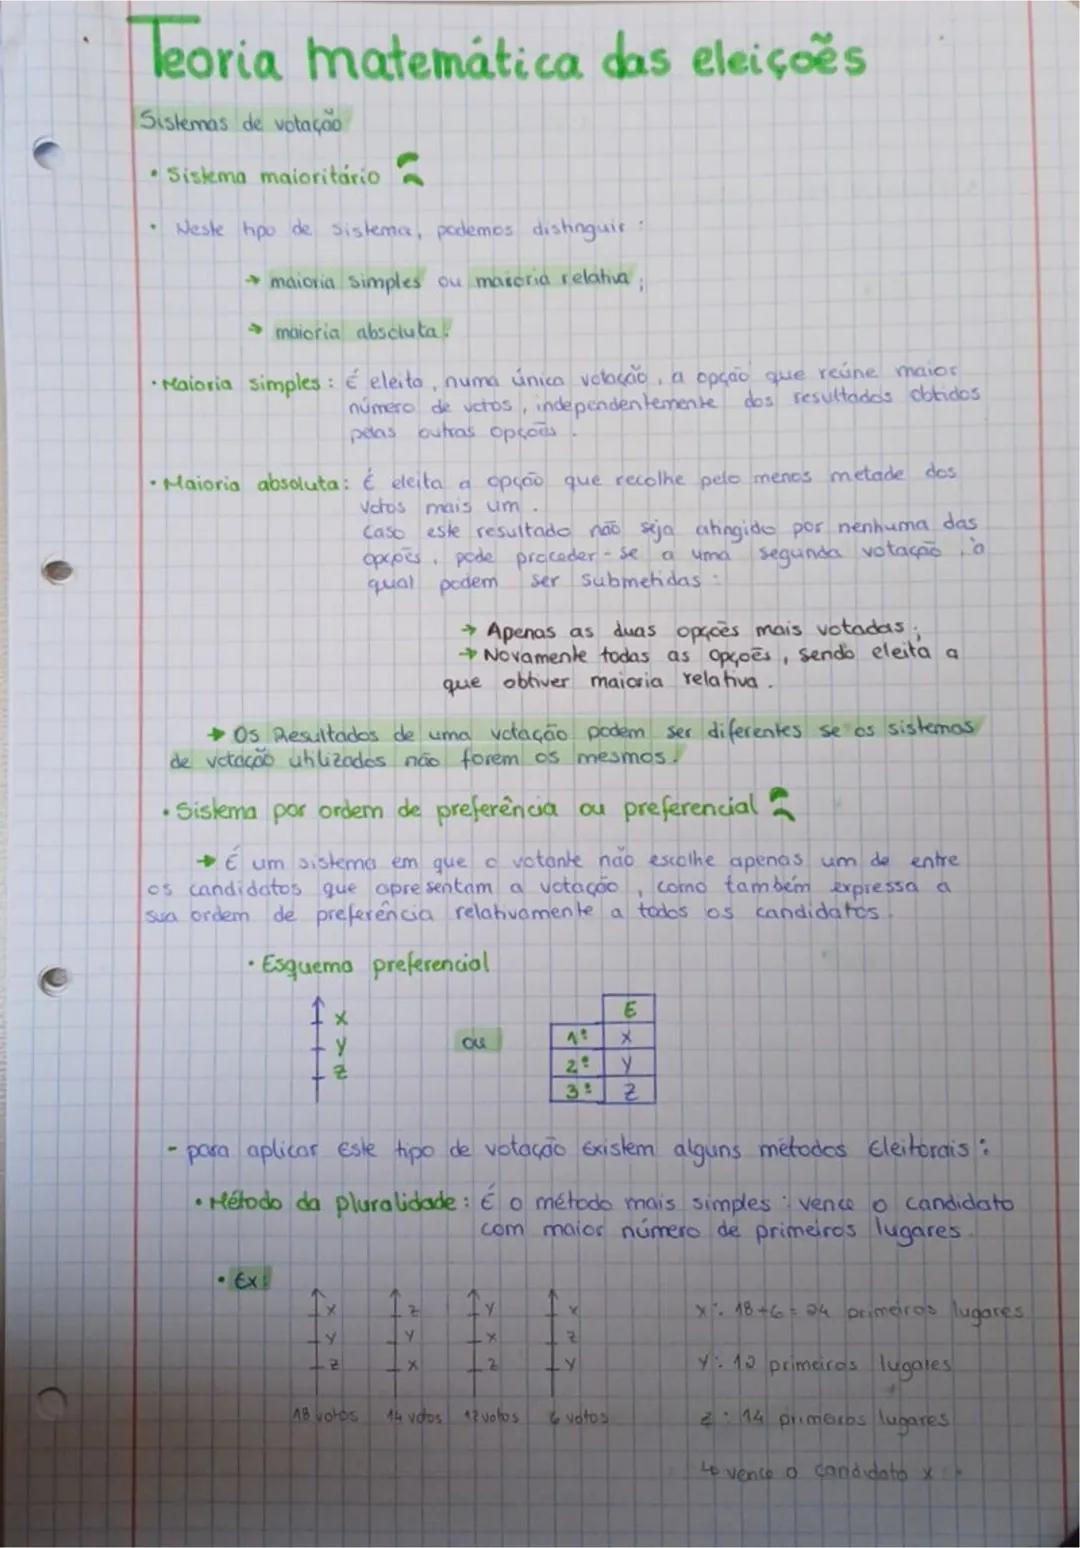 Teoria matemática das eleições
Sistemas de votação
• Sistema maioritário
• Neste tipo de sistema, podemos distinguir :
→ maioria simples ou maioria relativa ;
→ maioria absoluta.
• Maioria simples : É eleito, numa única votação, a opção que reúne maior
número de votos, independentemente dos resultados obtidos
pelas outras opções .
• Maioria absoluta: É eleita a opção que recolhe pelo menos metade dos
votos mais um .
Caso este resultado não seja atingido por nenhuma das
opções, pode proceder-se a uma segunda votação, à
qual podem ser submetidas :
→ Apenas as duas opções mais votadas ;
→ Novamente todas as opções, sendo eleita a
que obtiver maioria relativa .
→ Os Resultados de uma votação podem ser diferentes se os sistemas
de votação utilizados não forem os mesmos.
• Sistema por ordem de preferência ou preferencial
→ É um sistema em que o votante não escolhe apenas um de entre
os candidatos que apresentam a votação, como também expressa a
sua ordem de preferência relativamente a todos os candidatos.
• Esquema preferencial
X
Y
Z
ou
E
1º X
2º Y
3º Z
- para aplicar este tipo de votação existem alguns métodos eleitorais :
• Método da pluralidade : É o método mais simples : vence o candidato
com maior número de primeiros lugares.
• Ex:
X Z Y X
Y Y X Z
Z X Z Y
18 votos 14 votos 12 votos 6 votos
X : 18+6 = 24 primeiros lugares
Y : 12 primeiros lugares
Z : 14 primeiros lugares
↳ vence o candidato X